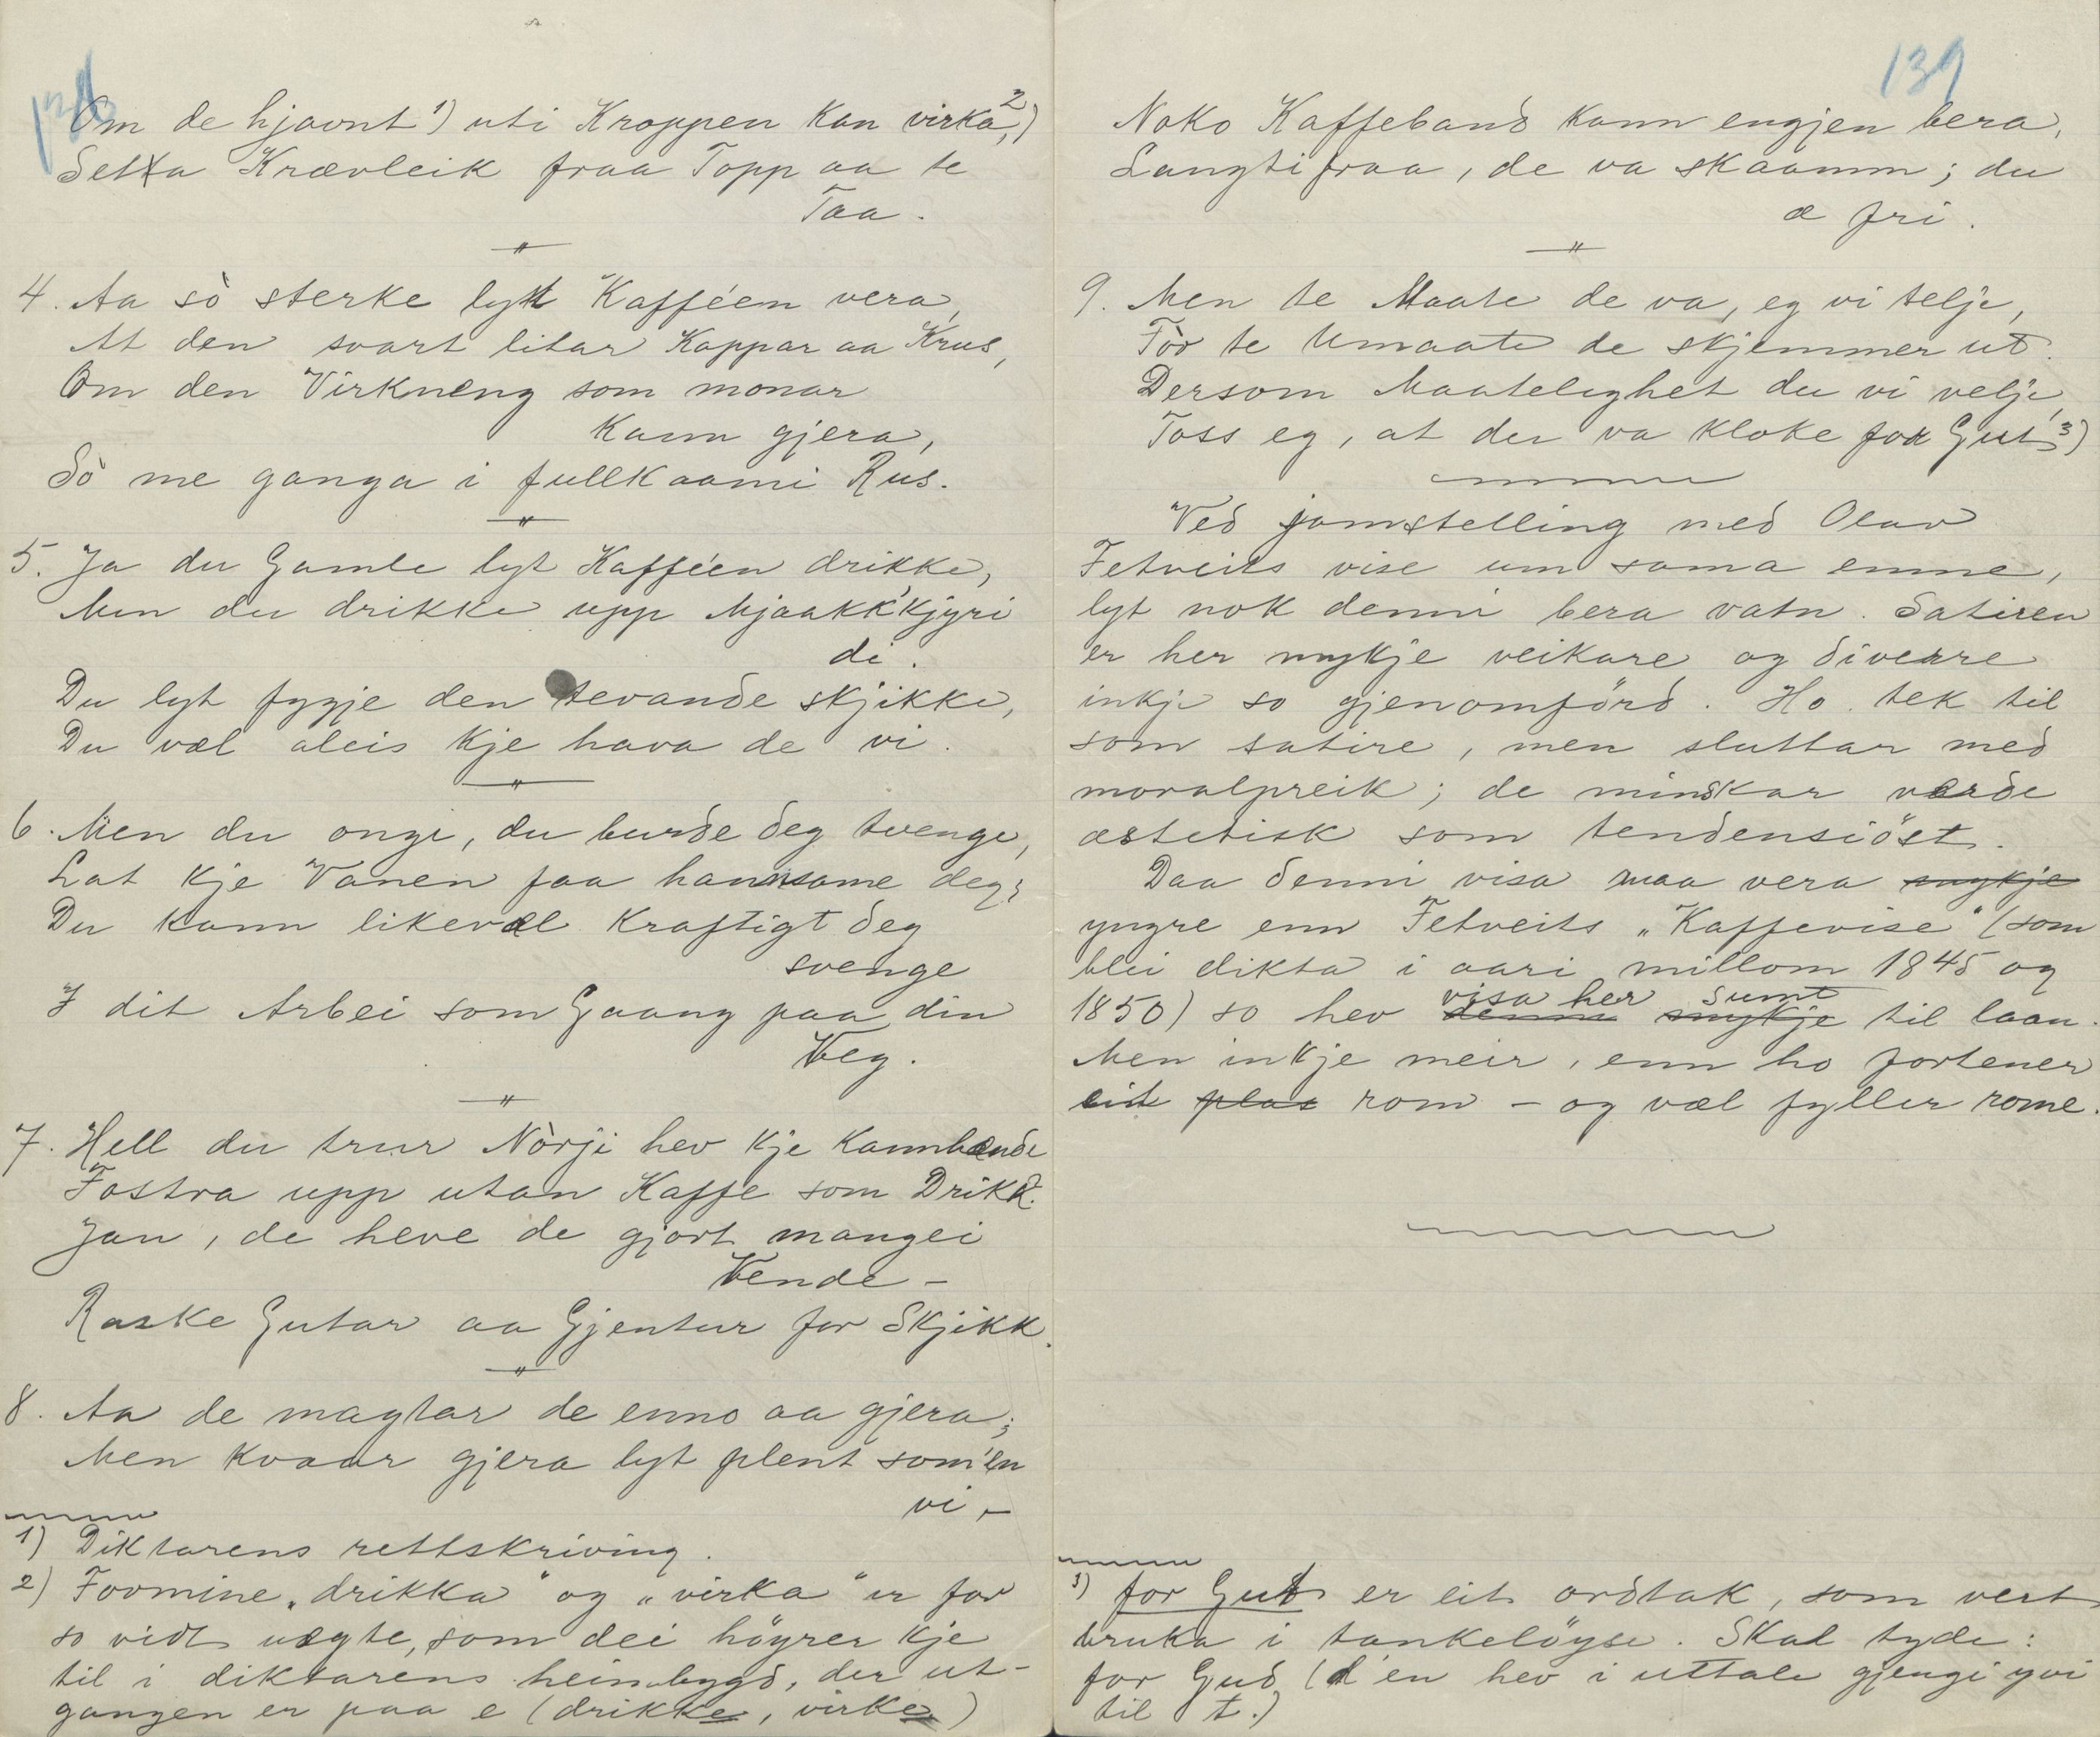 138
Om de hjaont 1) uti Kroppen kan virka, 2)
Setta Krævleik fraa Topp aa te
Taa.
4. Aa sò sterke lyt Kafféen vera,
At den svart litar Koppar aa Krus,
Om den Virkneng som monar
kann gjera,
Sò me ganga i fullkaami Rus.
5. Ja du Gamle lyt Kafféen drikke,
Men du drikke upp Mjaakk'kjyri
di.
Du lyt fygje den tevande skjikke,
Du væl aleis kje hava de vi.
6. Men du onge, du burde deg tvenge,
Lat kje Vanen faa hannsame deg;
Du kann likevæl kraftigt deg
svenge
I dit Arbei som Gaang paa din
Veg.
7. Hell du trur Nòrji hev kje kannhænde
Fostra upp utan Kaffe som Drikk?
Jau, de heve de gjort mangei
Vende –
Raske Gutar aa Gjentur for Skjikk.
8. Aa de magtar de enno aa gjera;
Men kvaar gjera lyt plent som'en
vi –
1) Diktarens rettskriving.
2) Formine „drikka" og „virka" er for
so vidt uægte, som dei höyrer kje
til i diktarens heimbygd, der ut-
gangen er paa e (drikke, virke)
139
Noko Kaffeband kann engjen bera,
Langtifraa, de va skaamm; du
æ fri.
9. Men te Maate de va, eg vi telje,
Fòr te Umaate de skjemmer ut.
Dersom Maatelighet du vi velje,
Toss eg, at du va kloke for Gut 3)
Ved jamstelling med Olav
Fetveits vise um sama emne,
lyt nok denni bera vatn. Satiren
er her mykje veikare og diverre
inkje so gjenomförd. Ho tek til
som satire, men sluttar med
moralpreik; de minskar værde
æstetisk som tendensiöst.
Daa denni visa maa vera mykje
yngre enn Fetveits „Kaffevise" (som
blei dikta i aari millom 1845 og
1850) so hev denni visa her mykje sumt til laan.
Men inkje meir, enn ho fortener
eit plas rom – og væl fyller rome.
3) for Gut er eit ordtak, som vert
bruka i tankelöyse. Skal tyde:
for Gud (d'en hev i uttale gjengi yvi
til t.)